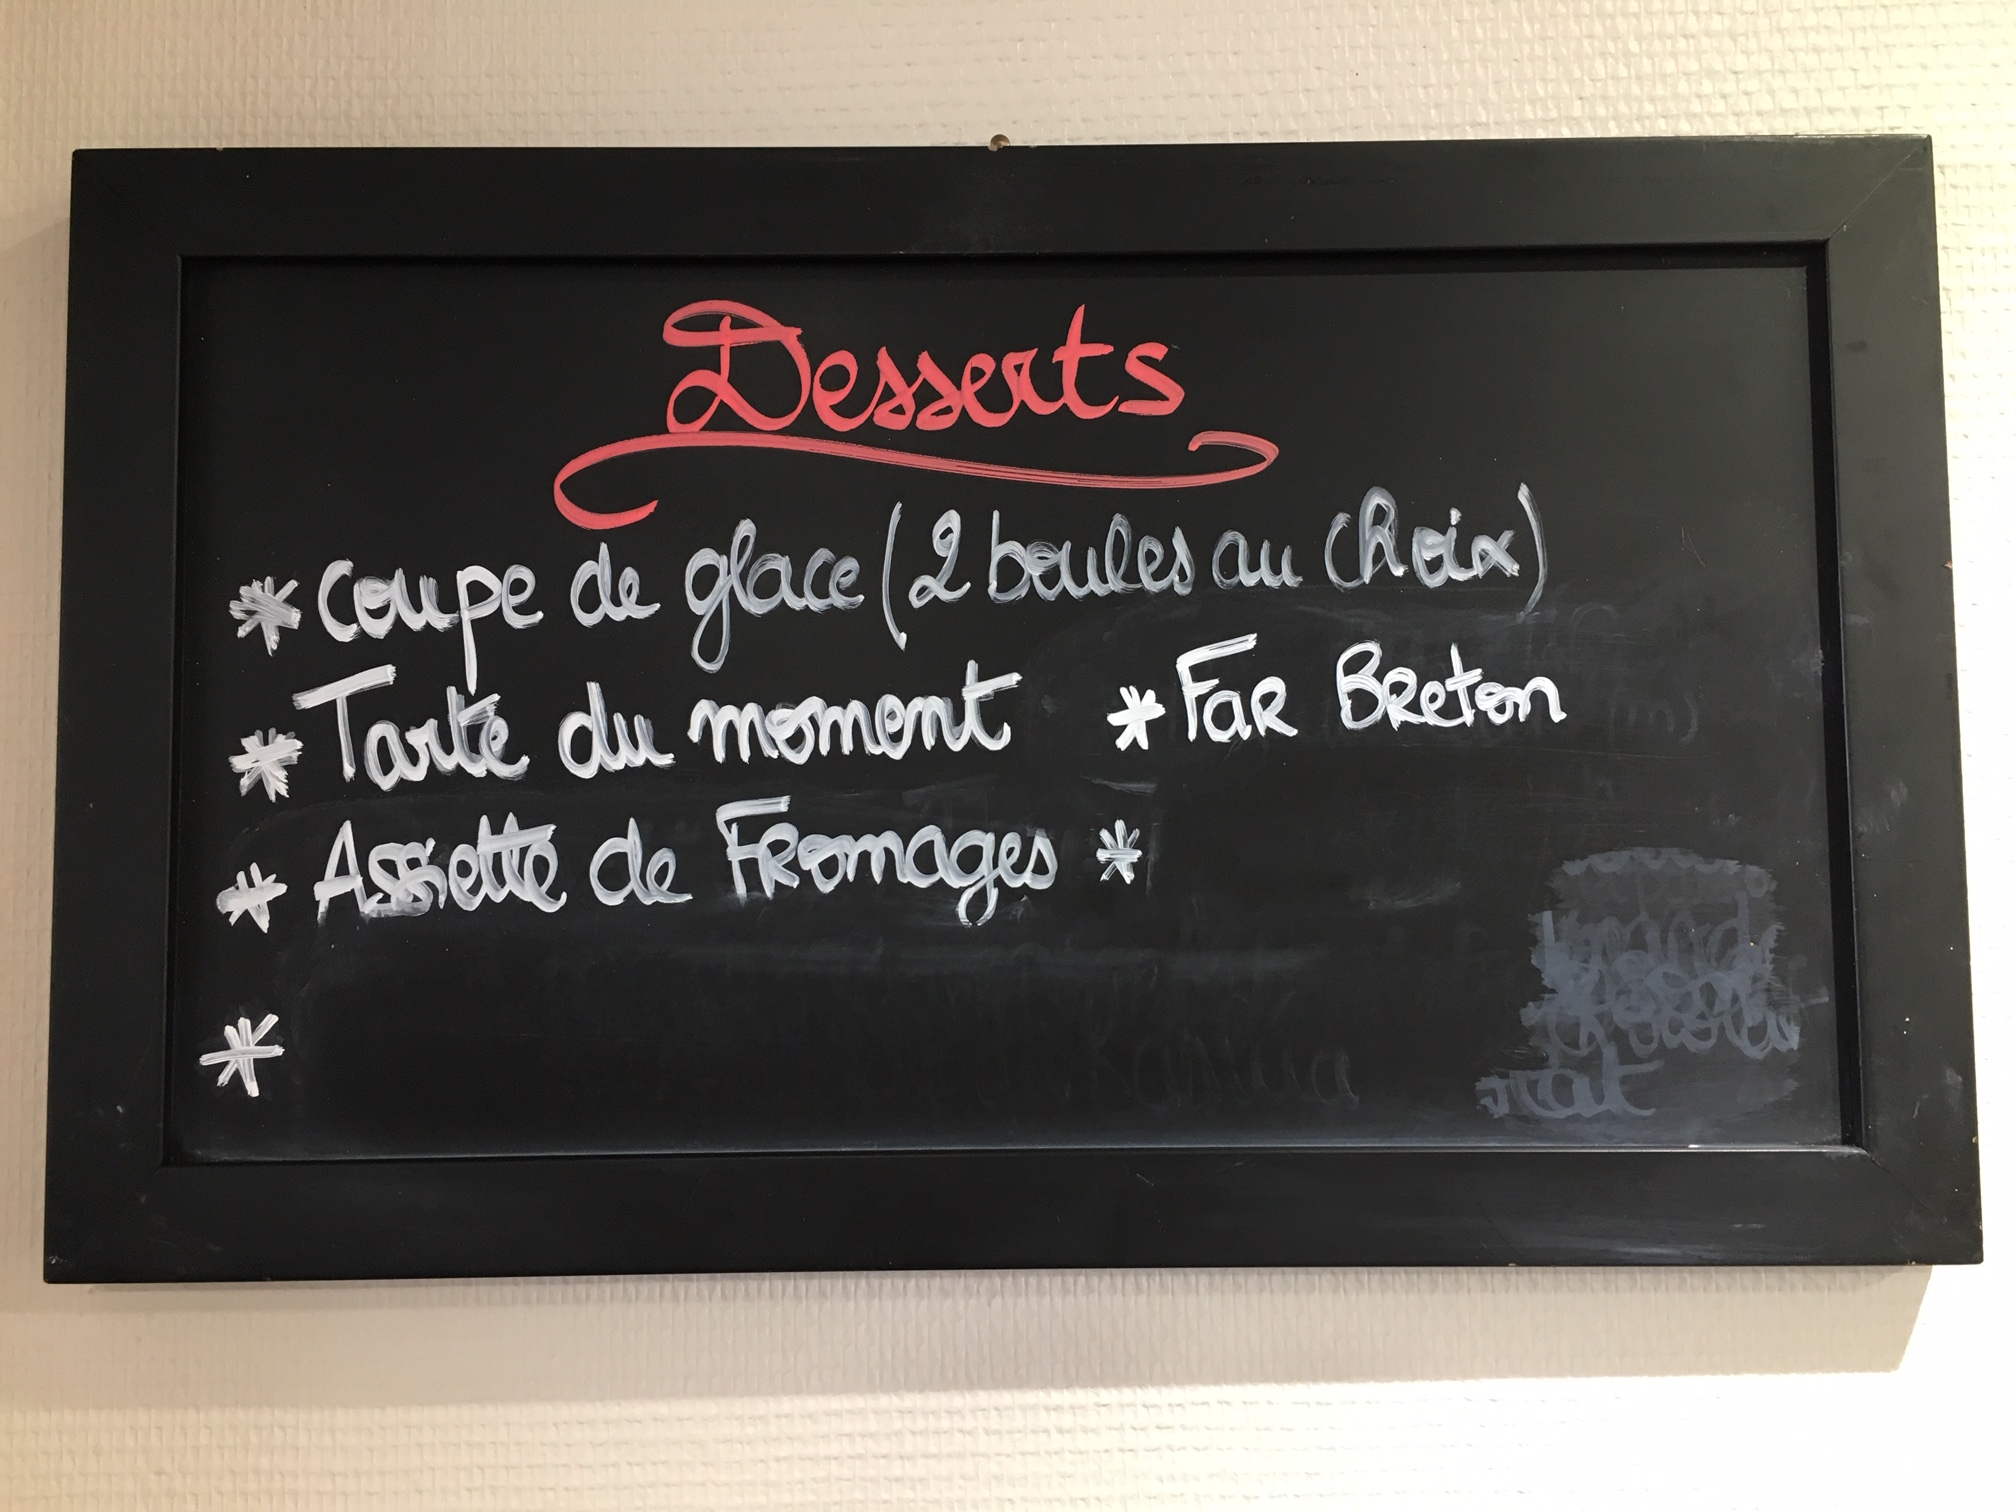 Desserts
* Coupe de glace (2 boules au choix)
* Tarte du moment * Far Breton
* Assiette de Fromages *
*